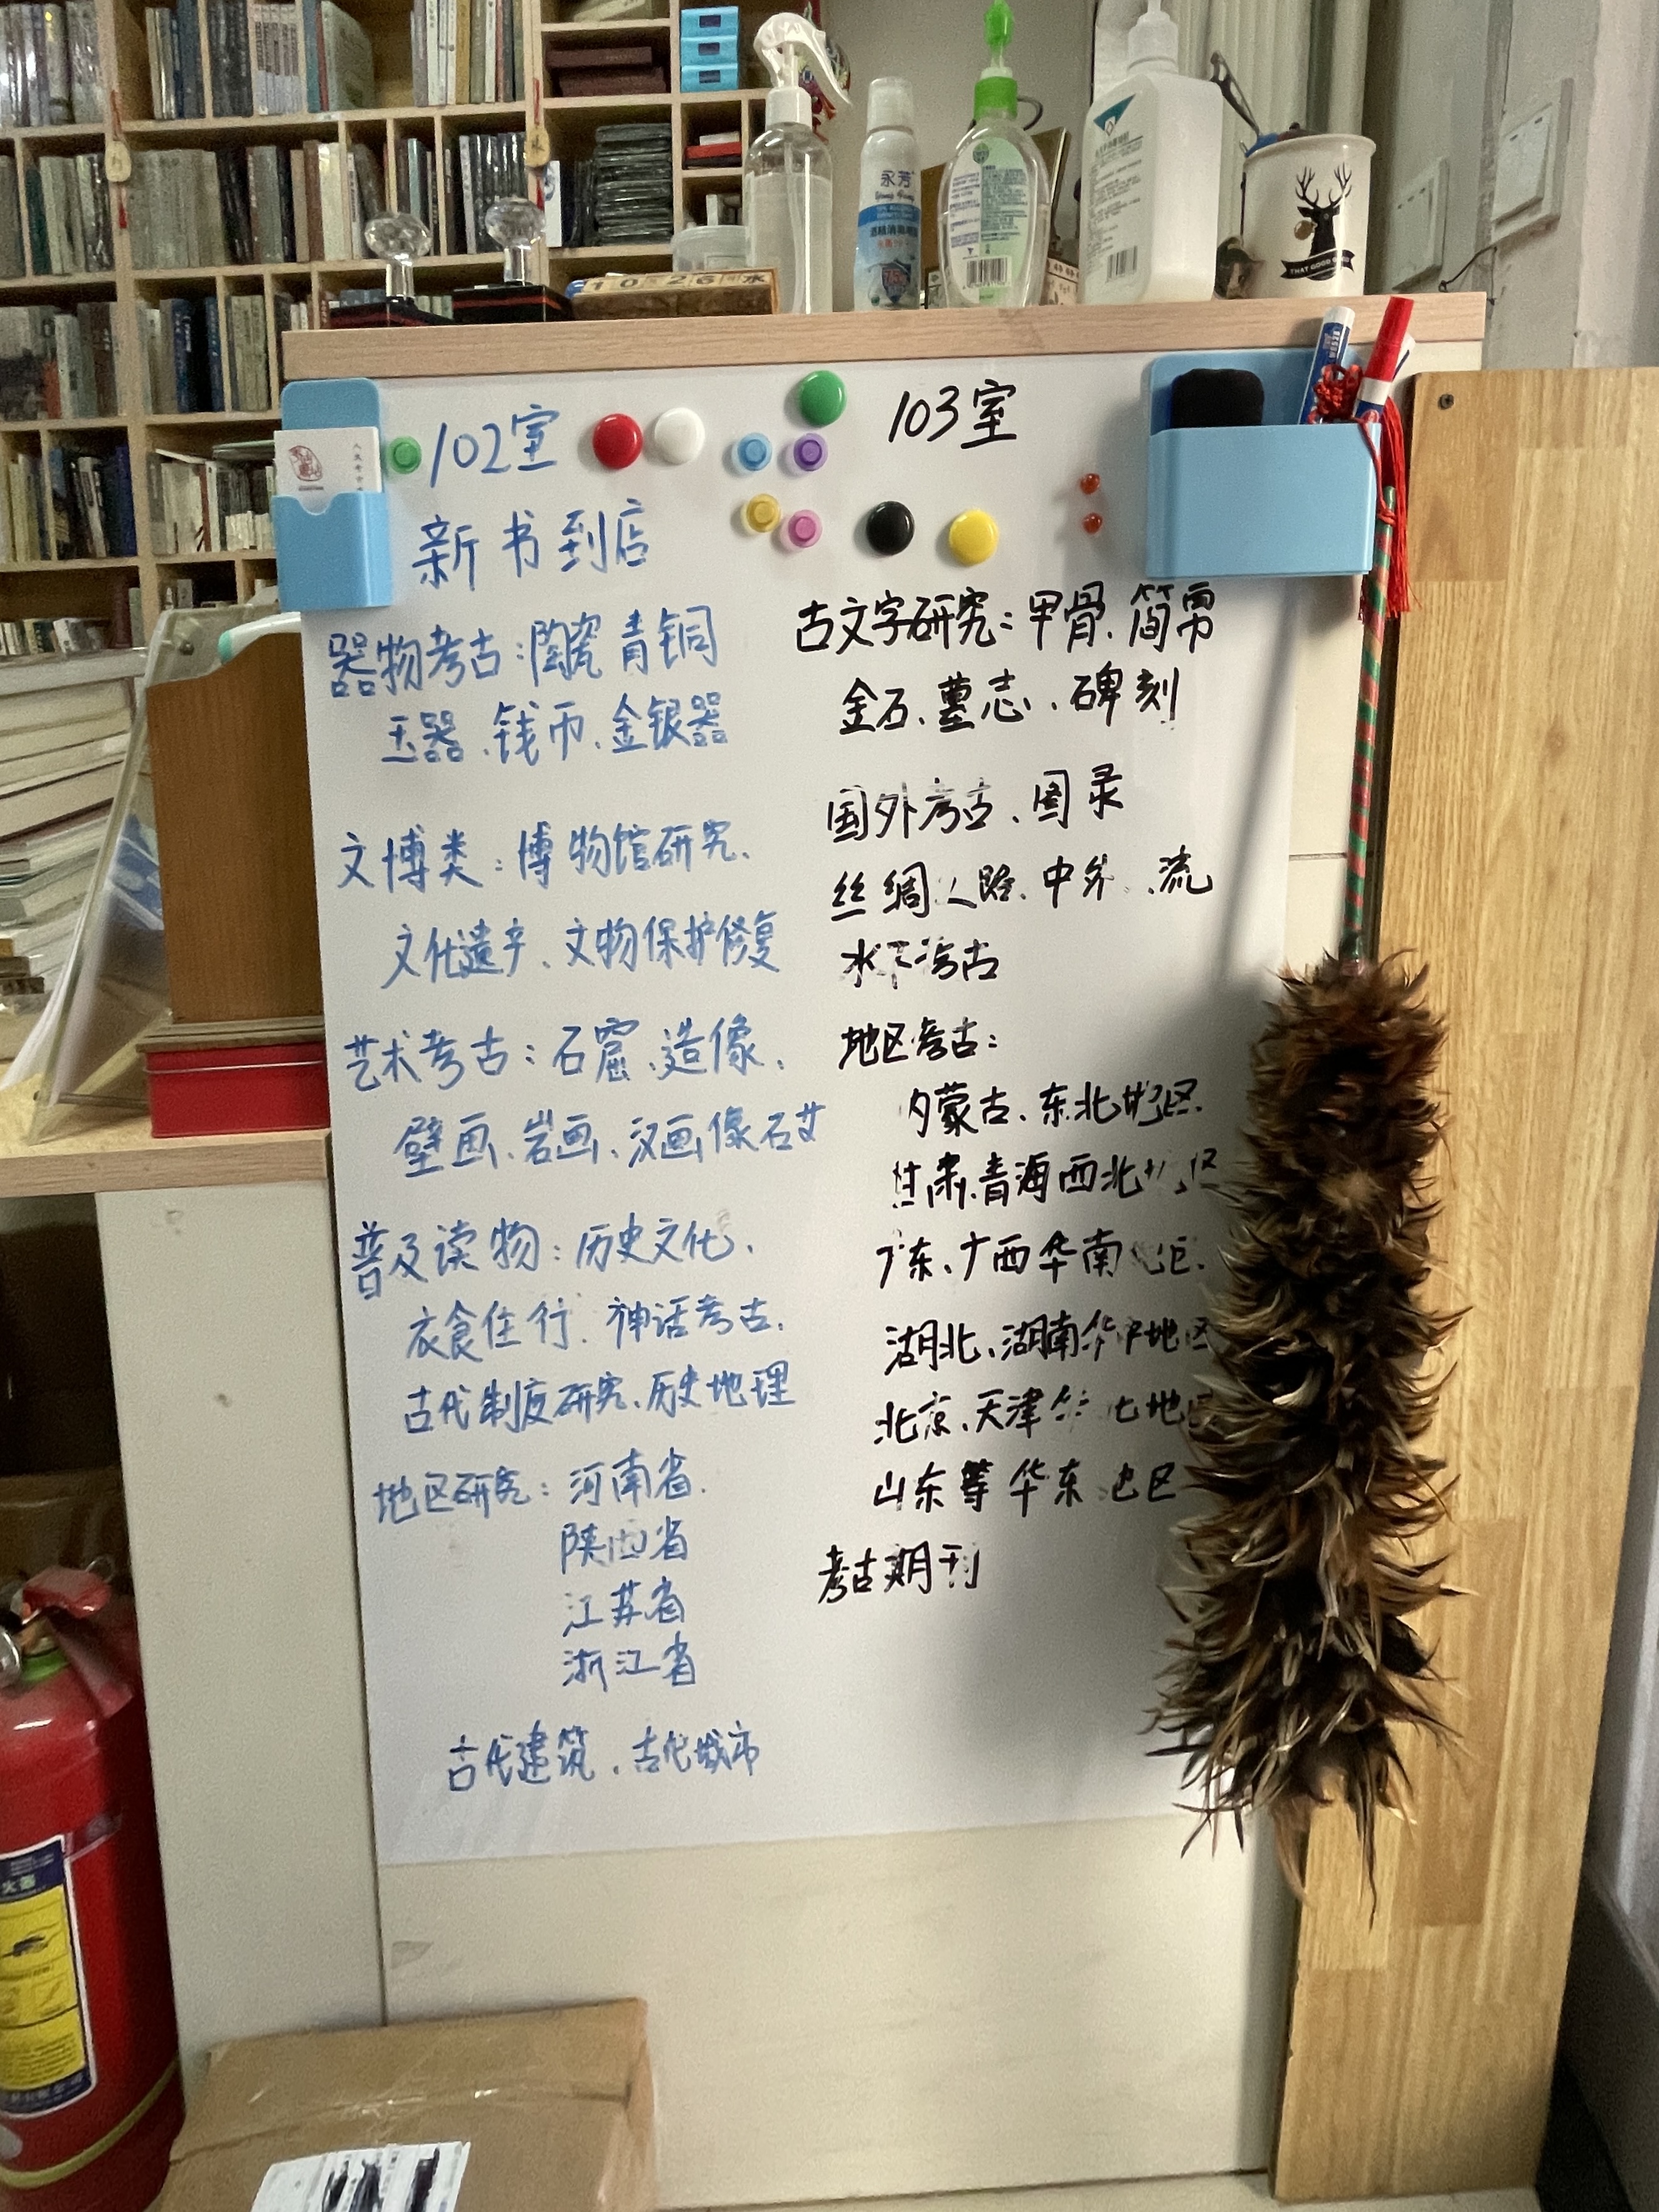 102室
新书到店
器物考古:陶瓷 青铜
玉器、钱币、金银器
文博类:博物馆研究、
文化遗产、文物保护修复
艺术考古:石窟、造像、
壁画、岩画、汉画像石艾
普及读物:历史文化、
衣食住行、神话考古、
古代制度研究、历史地理
地区研究:河南省、
陕西省
江苏省
浙江省
古代建筑、古代城市
103室
古文字研究:甲骨、简帛
金石、墓志、碑刻
国外考古、图录
丝绸之路、中外 、流
水下考古
地区考古:
内蒙古、东北地区、
甘肃、青海西北地区
广东、广西华南地区、
湖北、湖南华中地区
北京、天津华北地区
山东等华东地区
考古期刊
永芳
1026水
THAT GOOD
火器